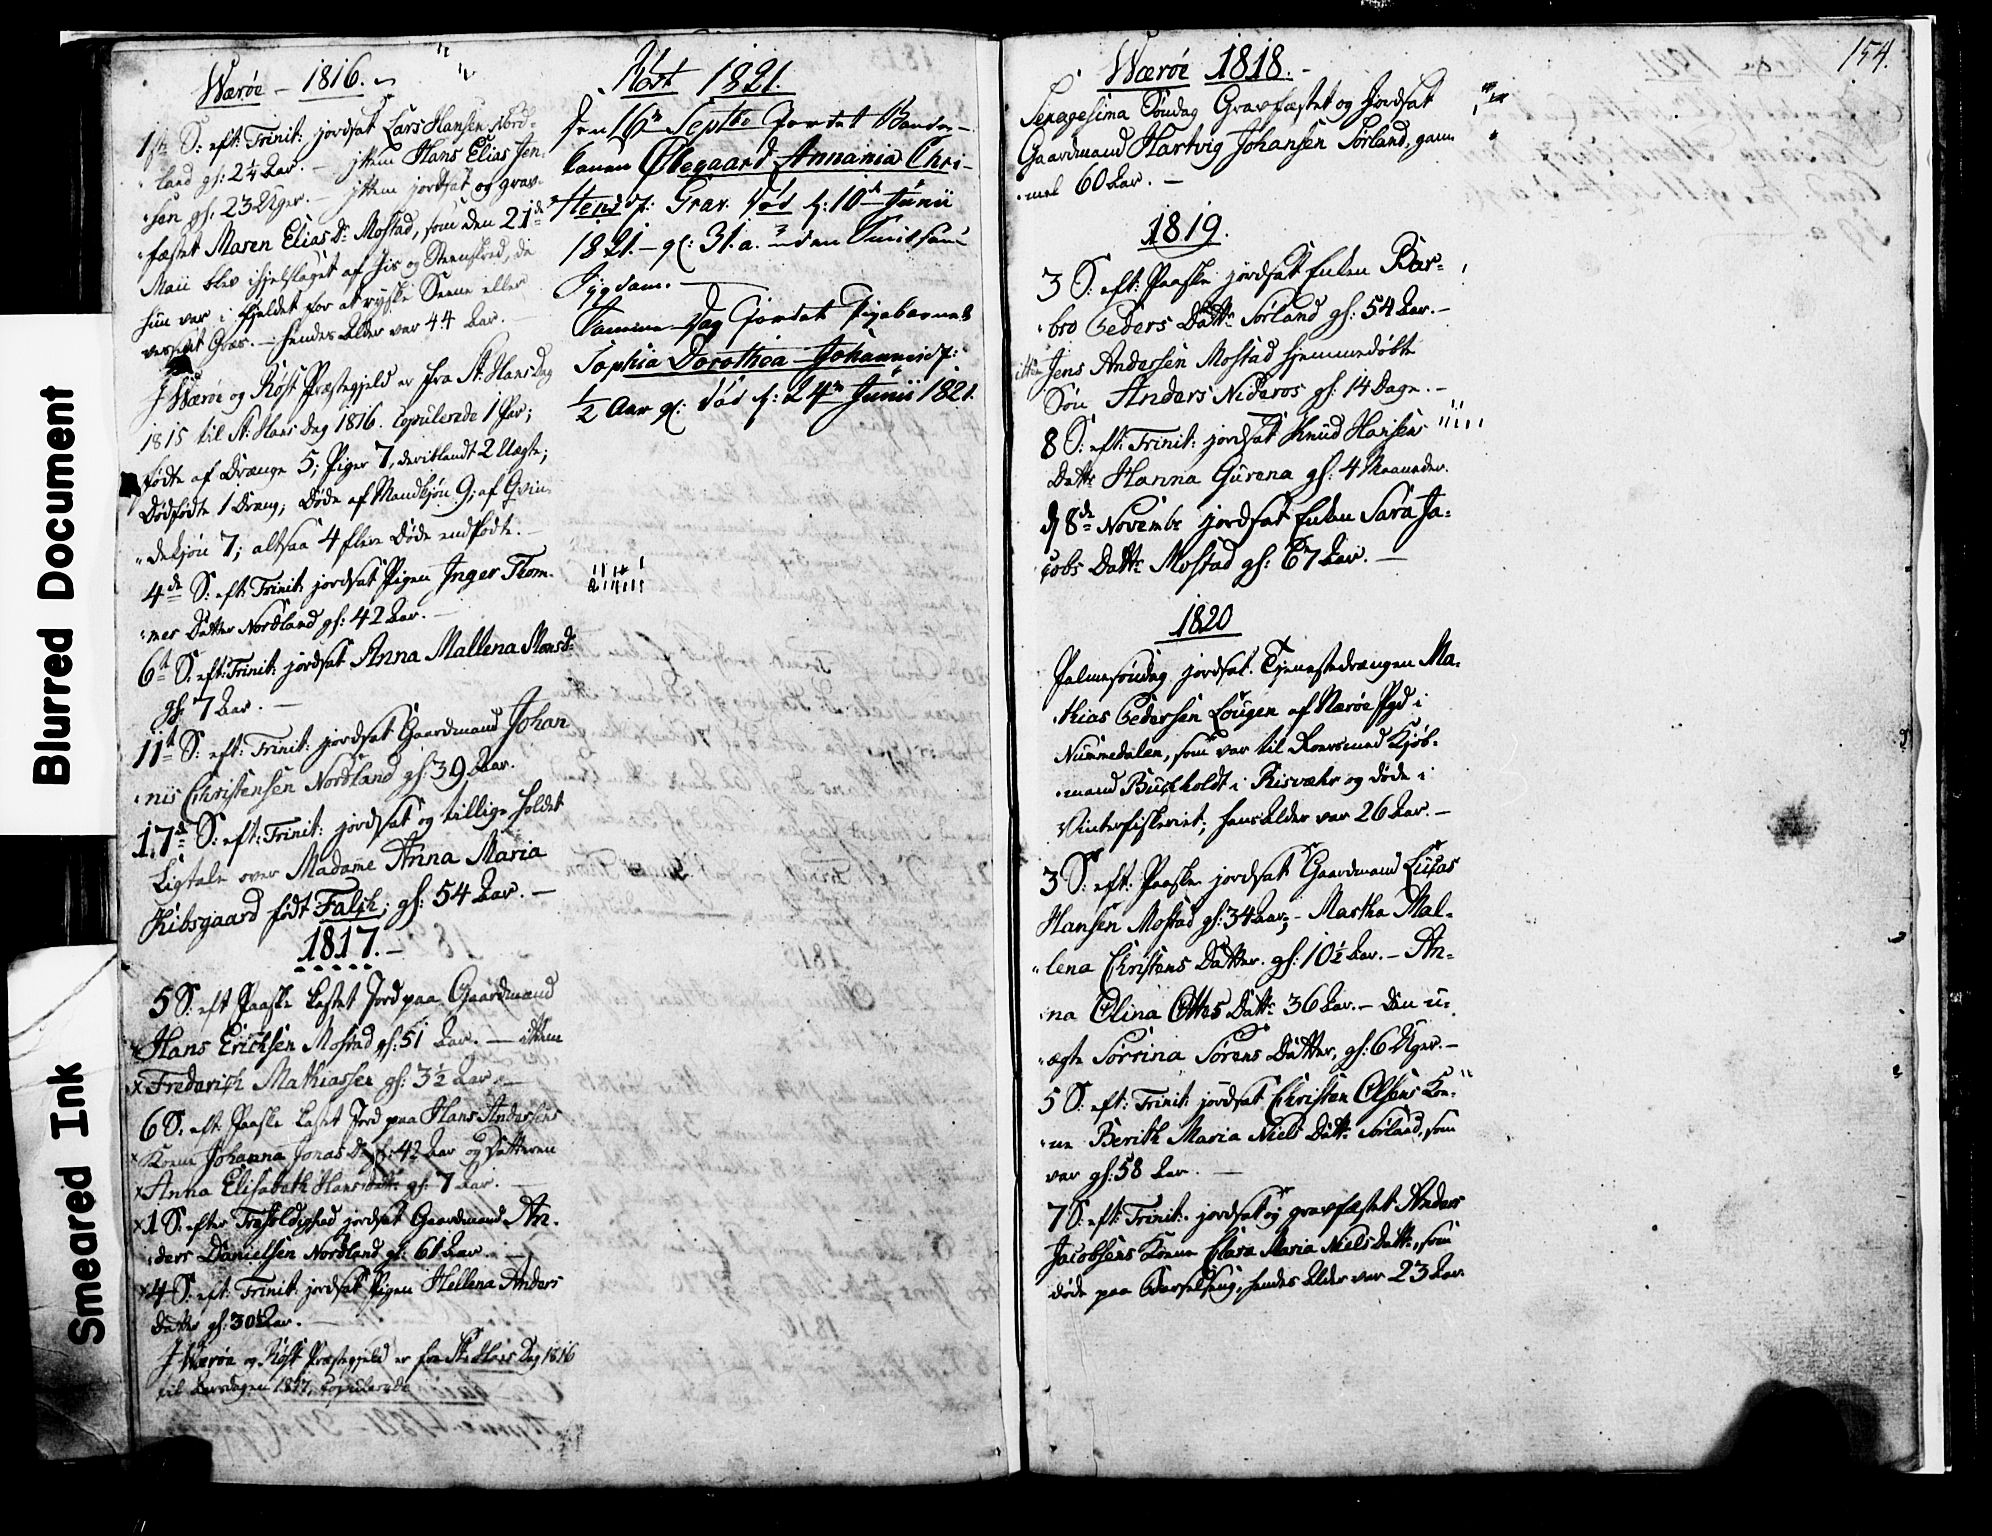 Blurred Document
Smeared Ink
Wærøe – 1816.
1ste S: eft: Trinit: jordsat Lars Hansen Nord-
land gl: 2¼ Aar. – ittem Hans Elias Jen-
sen gl: 23 Uger. – ittem jordsat og grav-
fæstet Maren Elias D: Mostad, som den 21de
Maii blev ihjelslaget af Iis og Steenskred, da
hun var i Fjeldet for at ryske Seene eller
Græs. – hendes Alder var 44 Aar.
I Wærøe og Røst Præstegjeld er fra St: Hans Dag
1815 til St: Hans Dag 1816. Copulerede 1 Par;
fødte af Drænge 5; Piger 7, deriblandt 2 Uægte;
Dødfødte 1 Dreng; Døde af Mandkjøn 9; af Qvin-
dekjøn 7; altsaa 4 flere Døde end fødte. –
4de S: eft: Trinit: jordsat Pigen Inger Thom-
mes Datter Nordland gl: 42 Aar. –
6te S: eft: Trinit: jordsat Anna Mallena Monsd:
gl: 7 Aar. –
11te S: eft: Trinit: jordsat Gaardmand Johan-
nis Christensen Nordland gl: 39 Aar.
17de S: eft: Trinit: jordsat og tillige holdet
Ligtale over Madame Anna Maria
Kibsgaard født Falch; gl: 54 Aar. –
1817. –
5 S: eft Paaske kastet Jord paa Gaardmand
Hans Erichsen Mostad gl: 51 Aar. – ittem
x Frederich Mathiassen gl: 3½ Aar. –
6 S: eft Paaske kastet Jord paa Hans Andersens
x Kone Johanna Jonas D: gl: 42 Aar og Datteren
x Anna Elisabeth Hansdattr gl: 7 Aar. –
x 1 S: efter Trefoldighed jordsat Gaardmand An-
ders Danielsen Nordland gl: 61 Aar. –
x 4 S: eft: Trinit: jordsat Pigen Hellena Anders
Datter gl: 30 Aar. –
I Wærøe og Røst Præstegjeld er fra St: Hans Dag 1816
til 1817, Copulerede
Røst 1821.
Den 16de Septbr Jordet Bonde-
konen Ødegaard Annania Chri-
stensdf: Grav. død d: 10de Junii
1821. – gl: 31. a. uden
Sygdom. –
Samme Dag Jordet Pigebarnet
Sophia Dorothea Johannisdf:
½ Aar gl: død d: 24de Junii 1821.
Wærøe 1818. –
Sexagesima Søndag Gravfæstet og Jordsat
Gaardmand Hartvig Johansen Sørland, gam-
mel 60 Aar. –
1819.
3 S: eft: Paaske jordsat Enken Bar-
bro Peders Dattr Sørland gl: 54 Aar. –
ittem Jens Andersen Mostad hjemmedøbte
Søn Anders Nideros gl: 14 Dage. –
8 S: eft: Trinit: jordsat Knud Hansens
Dattr Hanna Gurena gl: 4 Maaneder.
d 8de Novembr jordsat Enken Sara Ja-
cobs Dattr Mostad gl: 67 Aar. –
1820
Palmesøndag jordsat Tjenestedrængen Ma-
thias Pedersen Lougen af Nærøe Pgd i
Nummedalen, som var til Roersmed Kjøb-
mand Buchholdt i Risvæhr og døde i
Vinterfiskeriet; hans Alder var 26 Aar. –
3 S: eft: Paaske jordsat Gaardmand Lucas
Hansen Mostad gl: 34 Aar; – Martha Mal-
lena Christens Datter. gl: 10½ Aar. – An-
na Olina Ottos Dattr 36 Aar. – Den u-
ægte Sørrina Sørens Datter, gl: 6 Uger. –
5 S: eft: Trinit: jordsat Christen Olsens Kon-
ne Berith Maria Niels Dattr Sørland, som
var gl: 58 Aar. –
7 S: eft: Trinit: jordsat og gravfæstet Anders
Jacobsens Konne Clara Maria Niels Dattr, som
døde paa Barselseng, hendes Alder var 23 Aar.
154.